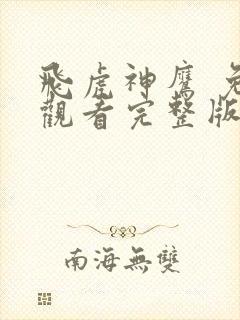 飛虎神鷹 免
觀看完整版
南海無雙